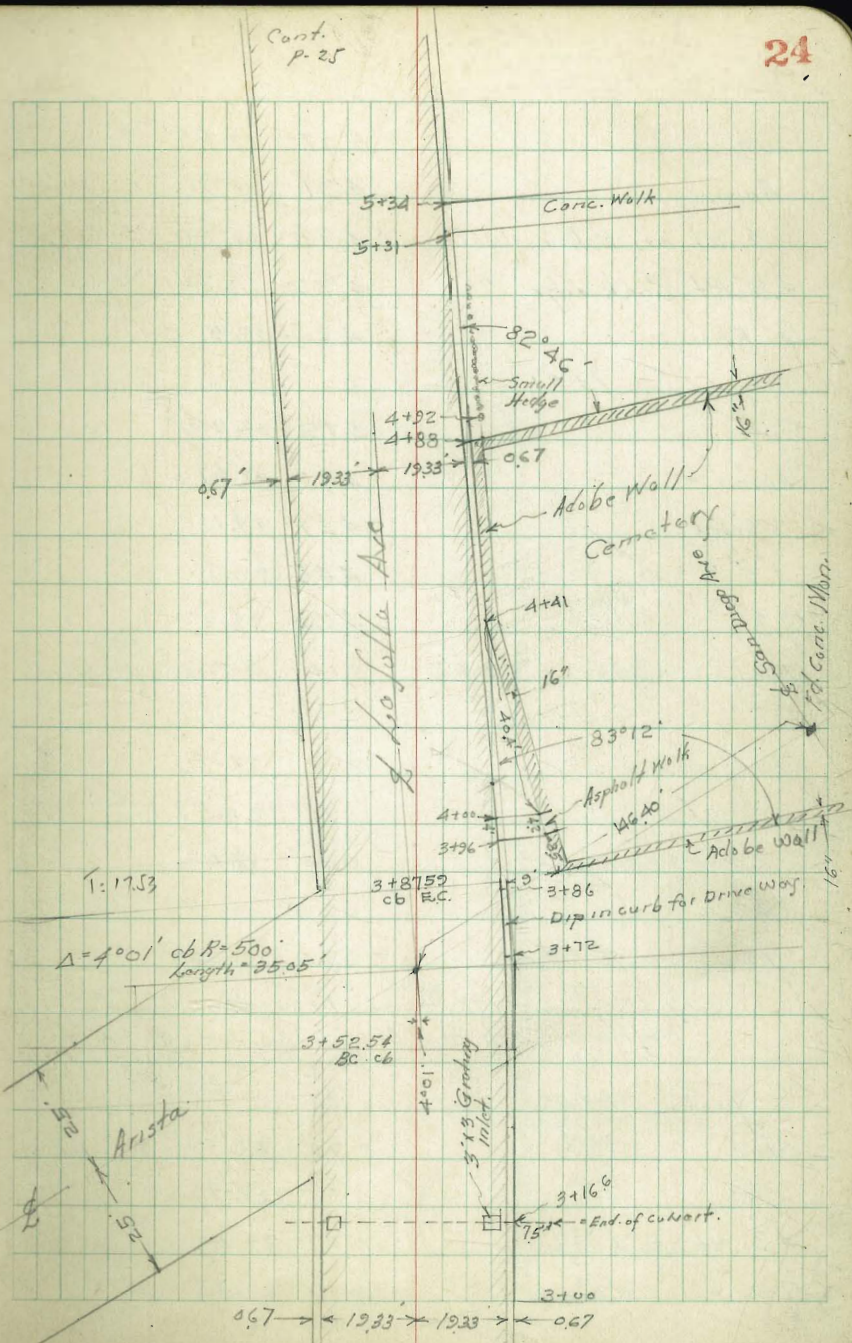 24
Cont.
P-25
5+34
Conc. Walk
5+31
82°46'
Small
Hedge
16"
4+92
4+88
0.67
0.67'
19.33'
19.33'
Adobe Wall
Cemetery
San Diego Ave
℄ La Jolla Ave
4+41
16"
Fd. Conc. Mon.
40.4'
83°12'
Asphalt Walk
4+00
4'
3+96
146.40'
Adobe Wall
16"
T: 17.53
3+87.59
cb E.C.
9'
3+86
Dip in curb for Drive Way.
Δ=4°01' cb R=500'
Length=35.05'
3+72
3+52.54
BC. cb
4°01'
3'x3' Grating
Inlet.
25'
Arista
25'
℄
3+16.6
7.5'
End of culvert.
3+00
0.67
19.33'
19.33
0.67